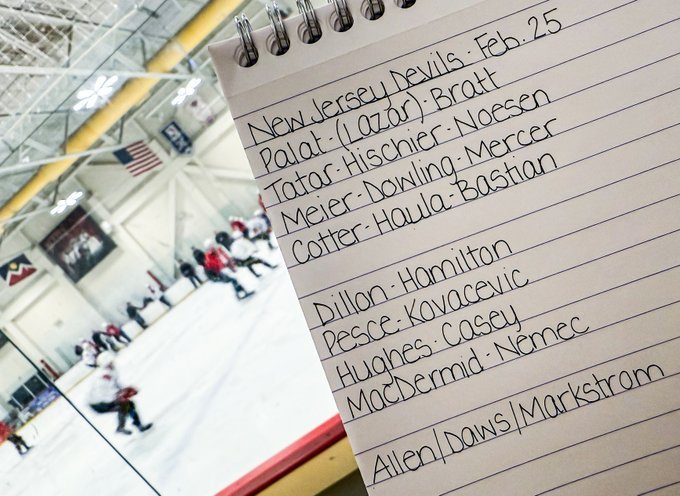 New Jersey Devils - Feb. 25
Palat - (Lazar) - Bratt
Tatar - Hischier - Noesen
Meier - Dowling - Mercer
Cotter - Haula - Bastian
Dillon - Hamilton
Pesce - Kovacevic
Hughes - Casey
MacDermid - Nemec
Allen/Daws/Markstrom